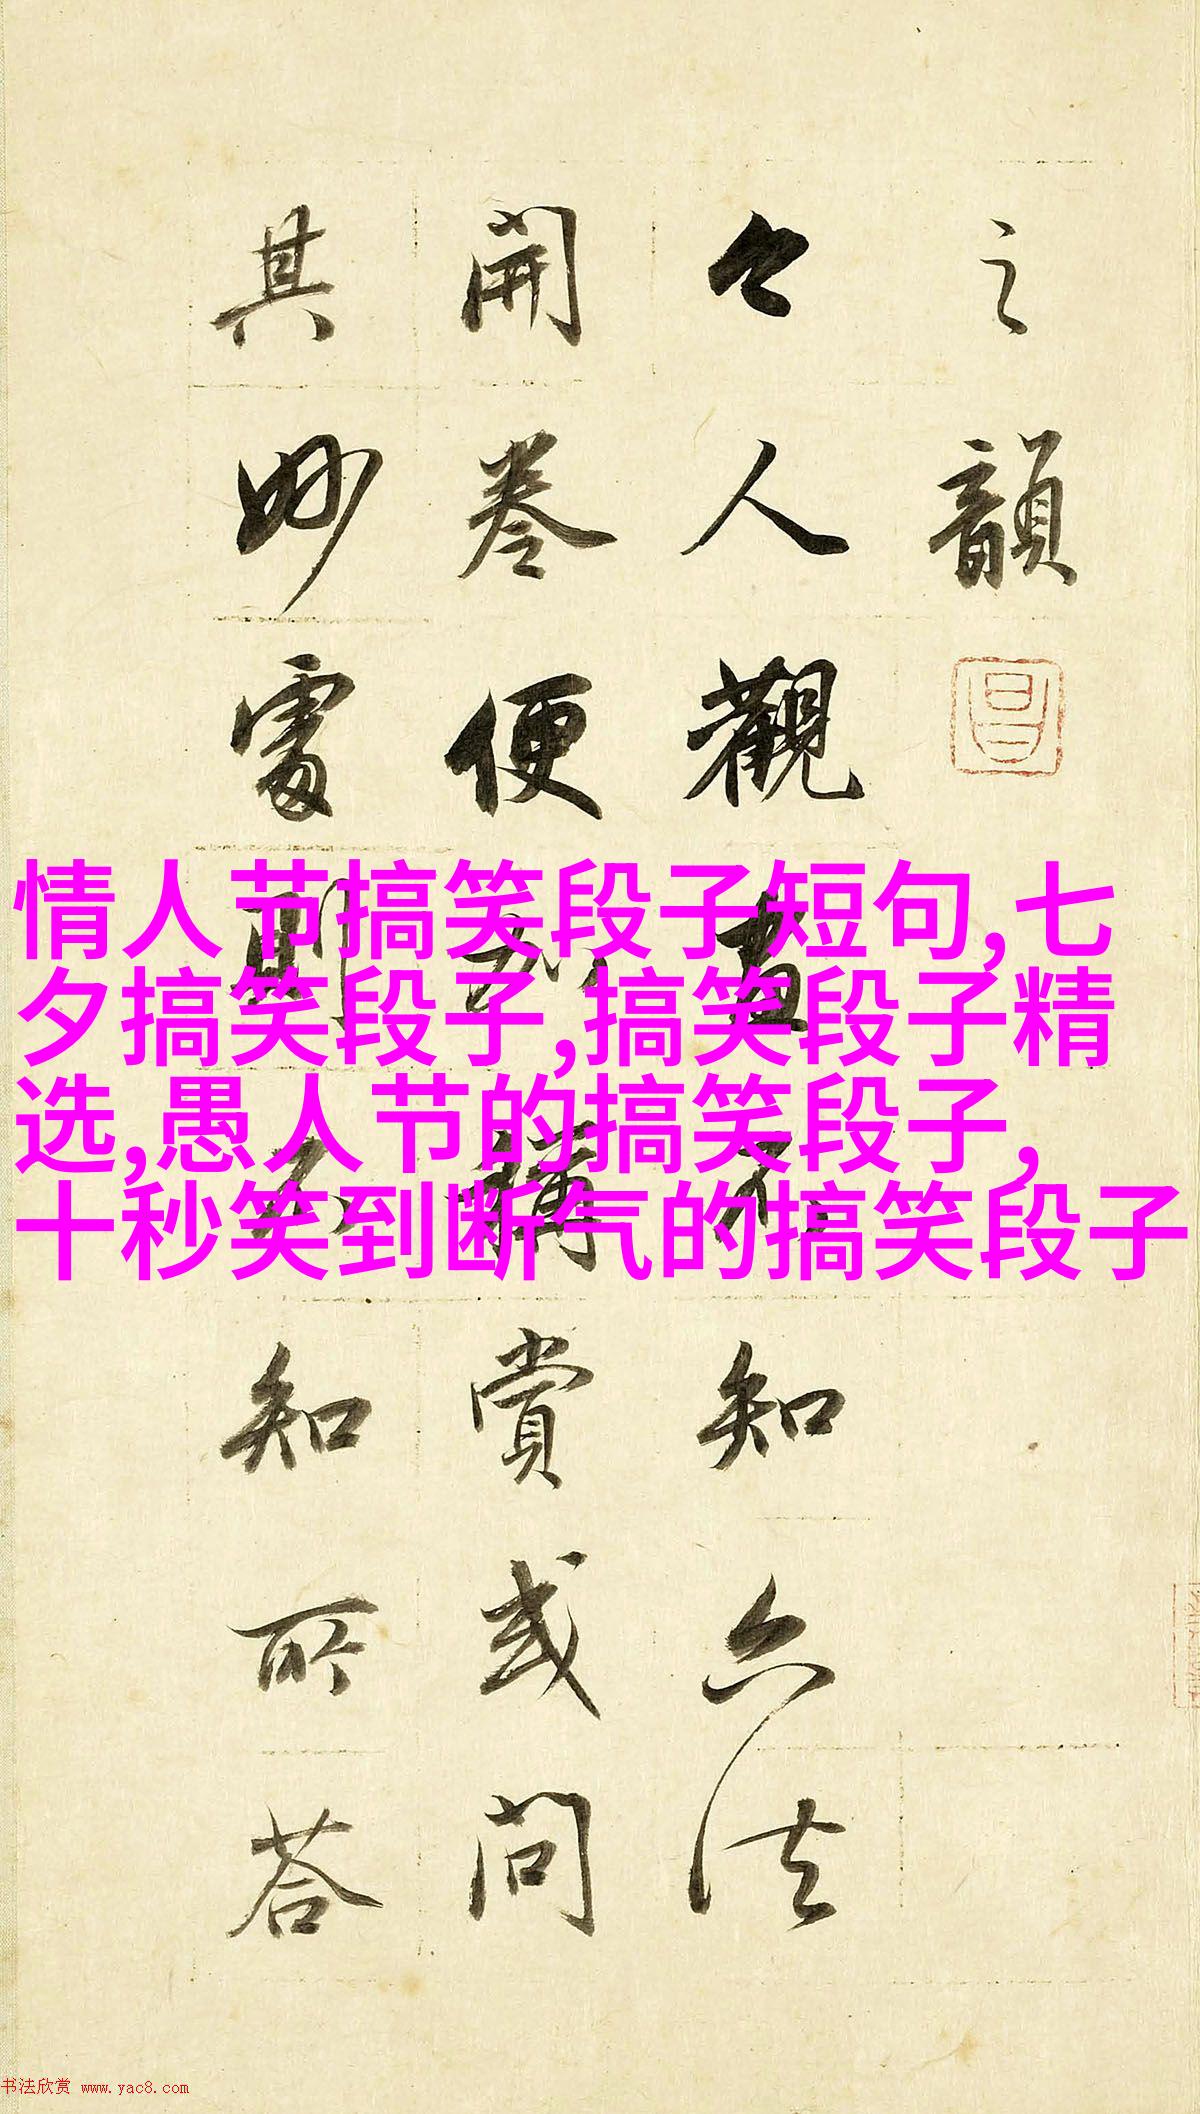 之韻
昌
今人觀畫不知六法
開卷便加稱賞或問
其妙處則不知所荅
情人节搞笑段子短句,七
夕搞笑段子,搞笑段子精
选,愚人节的搞笑段子,
十秒笑到断气的搞笑段子
书法欣赏 www.yac8.com